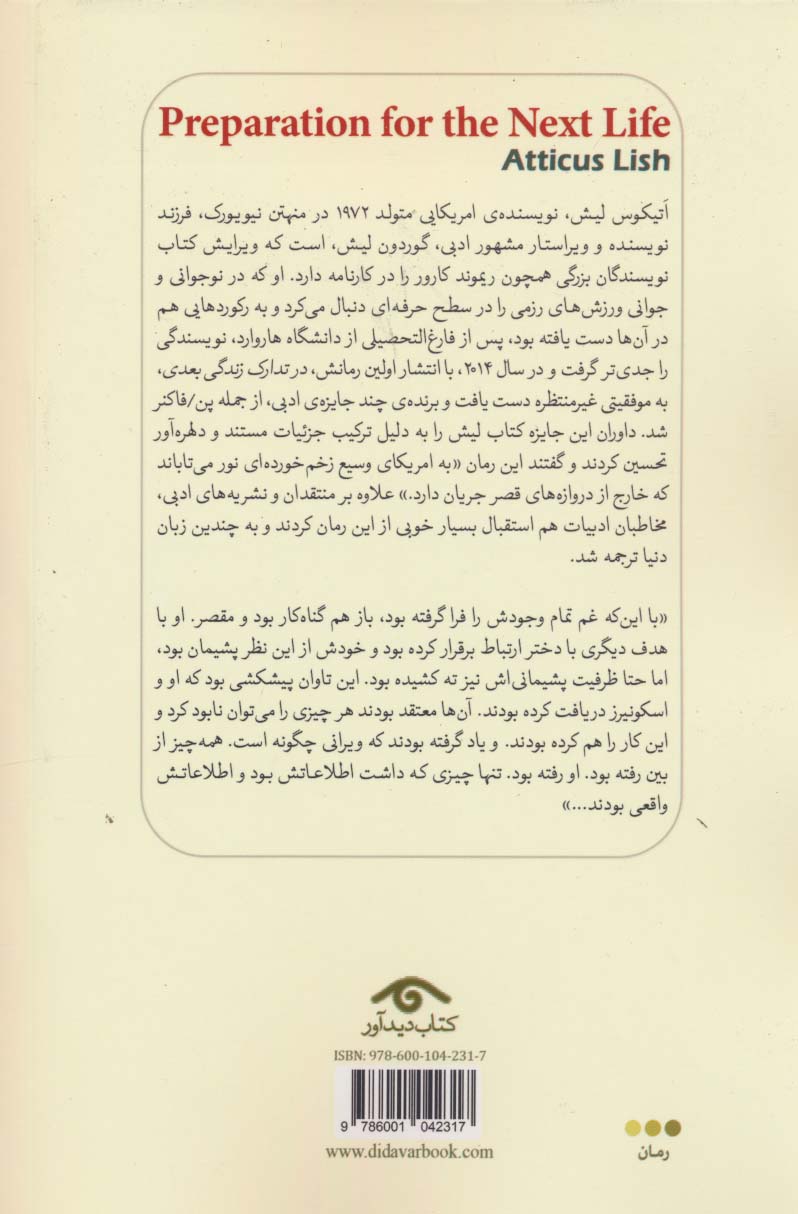 Preparation for the Next Life
Atticus Lish
اَتیکوس لیش، نویسنده‌ی امریکایی متولد ۱۹۷۲ در منهتن نیویورک، فرزند
نویسنده و ویراستار مشهور ادبی، گوردون لیش، است که ویرایش کتاب
نویسندگان بزرگی همچون ریموند کارور را در کارنامه دارد. او که در نوجوانی و
جوانی ورزش‌های رزمی را در سطح حرفه‌ای دنبال می‌کرد و به رکوردهایی هم
در آن‌ها دست یافته بود، پس از فارغ‌التحصیلی از دانشگاه هاروارد، نویسندگی
را جدی‌تر گرفت و در سال ۲۰۱۴، با انتشار اولین رمانش، در تدارک زندگی بعدی،
به موفقیتی غیرمنتظره دست یافت و برنده‌ی چند جایزه‌ی ادبی، از جمله پن/فاکنر
شد. داوران این جایزه کتاب لیش را به دلیل ترکیب جزئیات مستند و دلهره‌آور
تحسین کردند و گفتند این رمان «به امریکای وسیع زخم‌خورده‌ای نور می‌تاباند
که خارج از دروازه‌های قصر جریان دارد.» علاوه بر منتقدان و نشریه‌های ادبی،
مخاطبان ادبیات هم استقبال بسیار خوبی از این رمان کردند و به چندین زبان
دنیا ترجمه شد.
«با این‌که غم تمام وجودش را فرا گرفته بود، باز هم گناه‌کار بود و مقصر. او با
هدف دیگری با دختر ارتباط برقرار کرده بود و خودش از این نظر پشیمان بود،
اما حتا ظرفیت پشیمانی‌اش نیز ته کشیده بود. این تاوان پیشکشی بود که او و
اسکونیرز دریافت کرده بودند. آن‌ها معتقد بودند هر چیزی را می‌توان نابود کرد و
این کار را هم کرده بودند. و یاد گرفته بودند که ویرانی چگونه است. همه‌چیز از
بین رفته بود. او رفته بود. تنها چیزی که داشت اطلاعاتش بود و اطلاعاتش
واقعی بودند...»
کتاب دیدآور
ISBN: 978-600-104-231-7
9 786001 042317
www.didavarbook.com
رمان